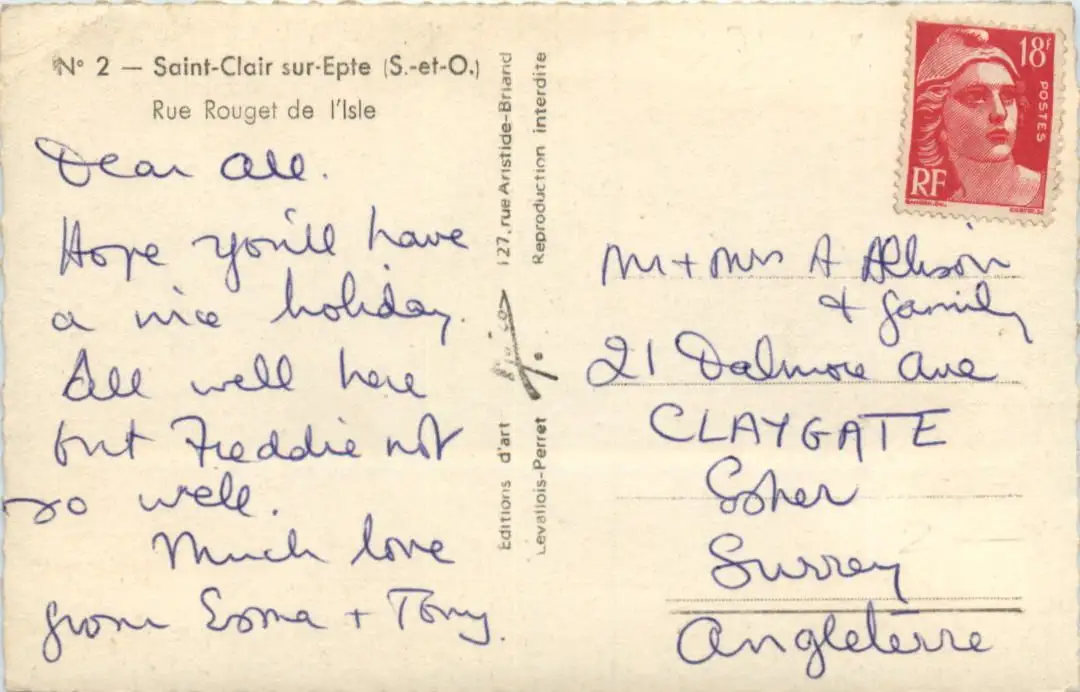 N° 2 — Saint-Clair sur-Epte (S.-et-O.)
Rue Rouget de l'Isle
Dear All.
Hope you'll have
a nice holiday.
All well here
but Freddie not
so well.
Much love
from Esma + Tony.
Editions d'art
127, rue Aristide-Briand
Levallois-Perret
Reproduction interdite
18f
POSTES
RF
Mr + Mrs A Allison
+ family
21 Dalmore Ave
CLAYGATE
Esher
Surrey
Angleterre